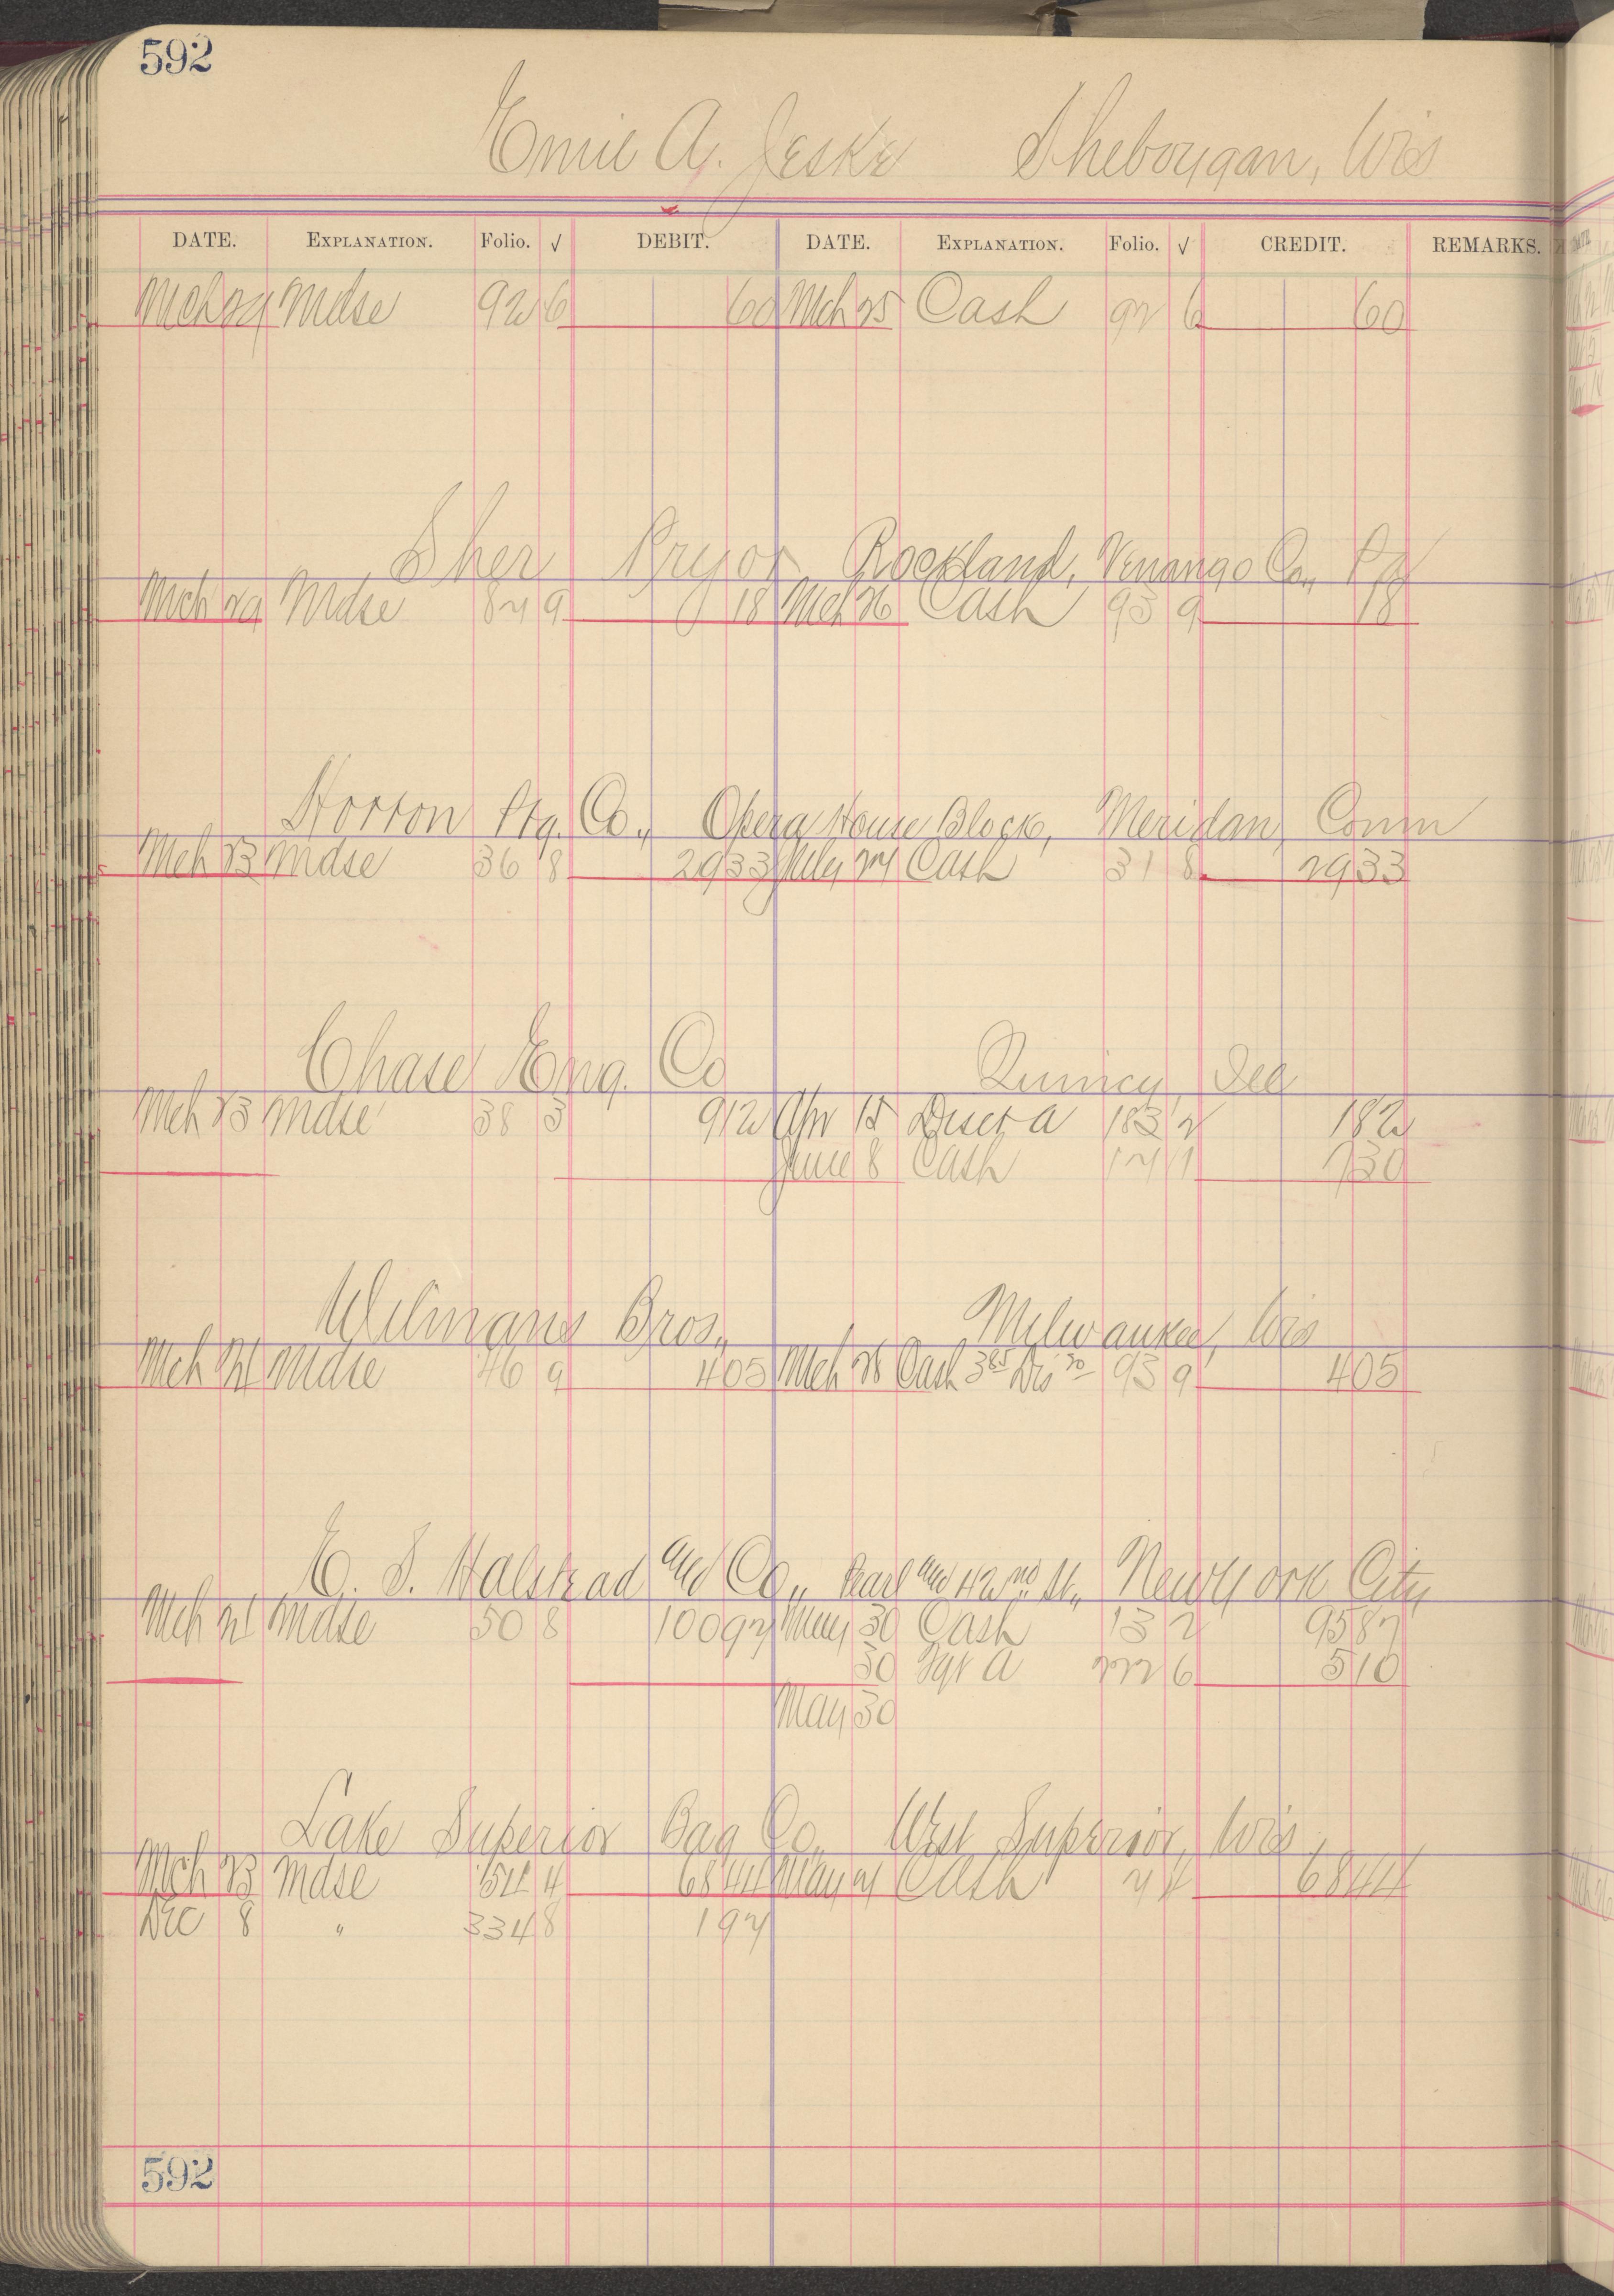 592
Emil A. Jeske Sheboygan, Wis
DATE. EXPLANATION. Folio. √ DEBIT. DATE. EXPLANATION. Folio. √ CREDIT. REMARKS.
Mch 24 Mdse 92 6 60 Mch 25 Cash 92 6 60
Sher Pryor Rockland, Venango Co., Pa
Mch 24 Mdse 84 9 18 Mch 26 Cash 93 9 18
Horton Ptg. Co., Opera House Block, Meridan, Conn
Mch 23 Mdse 36 8 2933 Cash 31 8 2933
Chase Eng. Co Quincy, Ill
Mch 23 Mdse 38 3 912 Apr 15 Disct a 183 2 182
June 8 Cash 14 1 730
Wilmans Bros., Milwaukee, Wis
Mch 21 Mdse 46 9 405 Mch 26 Cash 385 Dis 20 93 9 405
E. S. Halstead and Co., Pearl and 42nd St., New York City
Mch 21 Mdse 50 8 10097 May 30 Cash 13 2 9587
30 a 222 6 510
May 30
Lake Superior Bag Co. West Superior, Wis.
Mch 23 Mdse 54 4 6844 May 21 Cash 2 4 6844
Dec 8 " 334 8 194
592